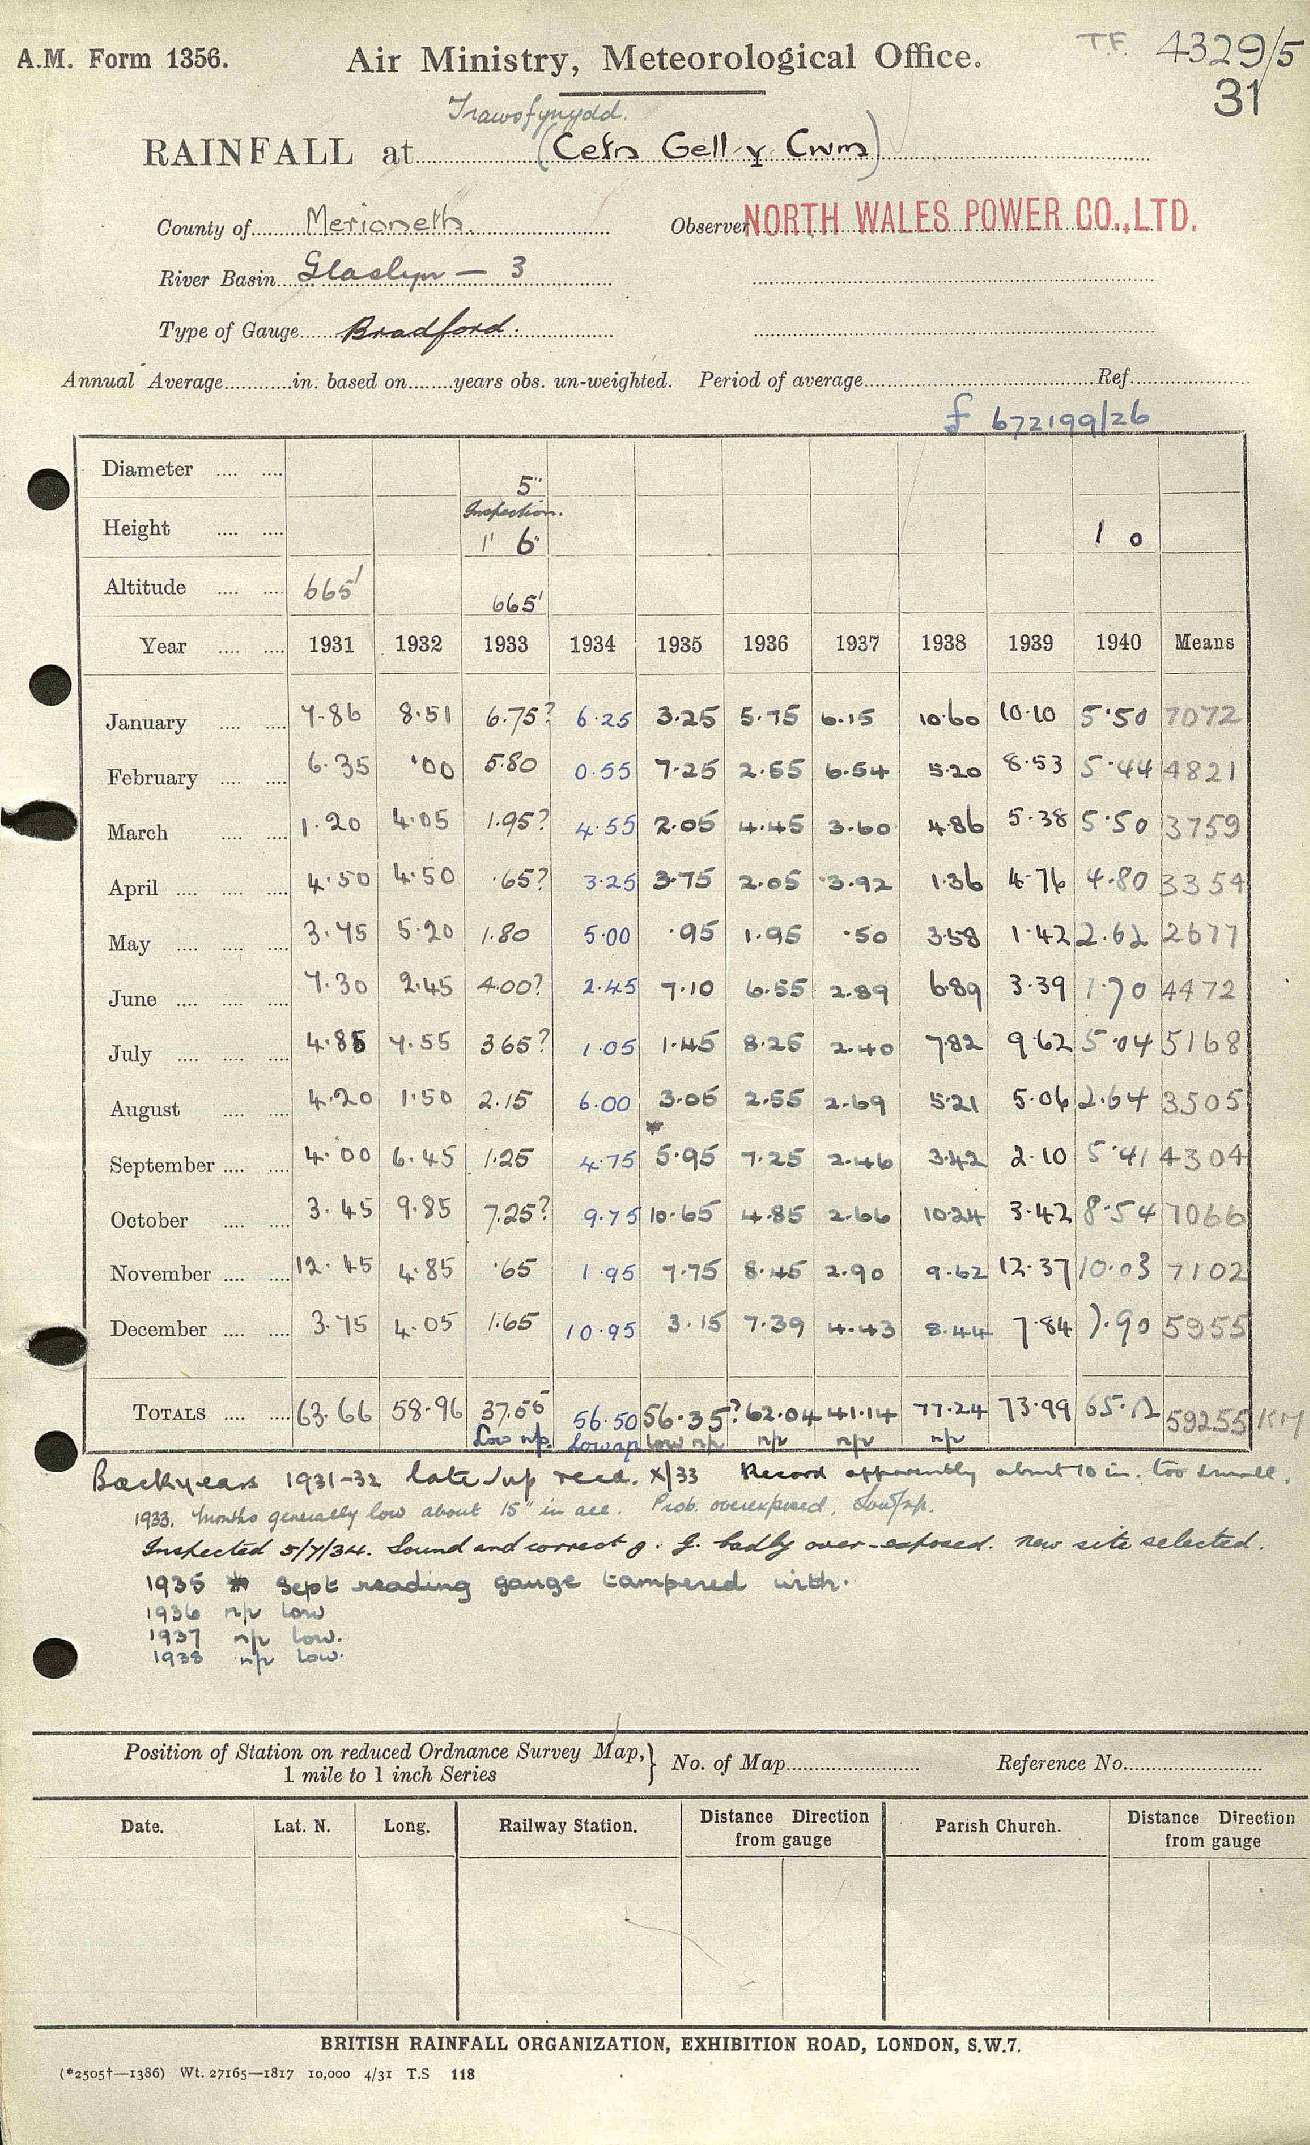 A.M. Form 1356.
Air Ministry, Meteorological Office.
T.F. 4329/5
31
Trawsfynydd.
RAINFALL at (Cefn Gell y Cwm)
County of Merioneth.
Observer NORTH WALES POWER CO., LTD.
River Basin Glaslyn — 3
Type of Gauge Bradford.
Annual Average in. based on years obs. un-weighted. Period of average Ref.
£ 672199/26
Diameter 5"
Inspection.
Height 1' 6" 1 0
Altitude 665' 665'
Year 1931 1932 1933 1934 1935 1936 1937 1938 1939 1940 Means
January 7.86 8.51 6.75? 6.25 3.25 5.75 6.15 10.60 10.10 5.50 7072
February 6.35 .00 5.80 0.55 7.25 2.55 6.54 5.20 8.53 5.44 4821
March 1.20 4.05 1.95? 4.55 2.05 4.45 3.60 4.86 5.38 5.50 3759
April 4.50 4.50 .65? 3.25 3.75 2.05 3.92 1.36 4.76 4.80 3354
May 3.75 5.20 1.80 5.00 .95 1.95 .50 3.58 1.42 2.62 2677
June 7.30 2.45 4.00? 2.45 7.10 6.55 2.89 6.89 3.39 1.70 4472
July 4.85 7.55 3.65? 1.05 1.45 8.25 2.40 7.82 9.62 5.04 5168
August 4.20 1.50 2.15 6.00 3.05 2.55 2.69 5.21 5.06 2.64 3505
September 4.00 6.45 1.25 4.75 * 5.95 7.25 2.46 3.42 2.10 5.41 4304
October 3.45 9.85 7.25? 9.75 10.65 4.85 2.66 10.24 3.42 8.54 7066
November 12.45 4.85 .65 1.95 7.75 8.45 2.90 9.62 12.37 10.03 7102
December 3.75 4.05 1.65 10.95 3.15 7.39 4.43 8.44 7.84 7.90 5955
TOTALS 63.66 58.96 37.55 56.50 56.35? 62.04 41.14 77.24 73.99 65.12 59255 KM
Low n/p. Low n/p low n/p n/p n/p n/p
Backyears 1931-32 late /up recd. X/33 Record apparently about 10 in. too small.
1933. Months generally low about 15" in all. Prob. overexposed. Low n/p.
Inspected 5/7/34. Sound and correct g. G. badly over-exposed. New site selected.
1935 * Sept reading gauge tampered with.
1936 n/p low
1937 n/p low.
1938 n/p low.
Position of Station on reduced Ordnance Survey Map, } No. of Map Reference No.
1 mile to 1 inch Series
Date. Lat. N. Long. Railway Station. Distance Direction from gauge Parish Church. Distance Direction from gauge
BRITISH RAINFALL ORGANIZATION, EXHIBITION ROAD, LONDON, S.W.7.
(*2505†—1386) Wt. 27165—1817 10,000 4/31 T.S 118